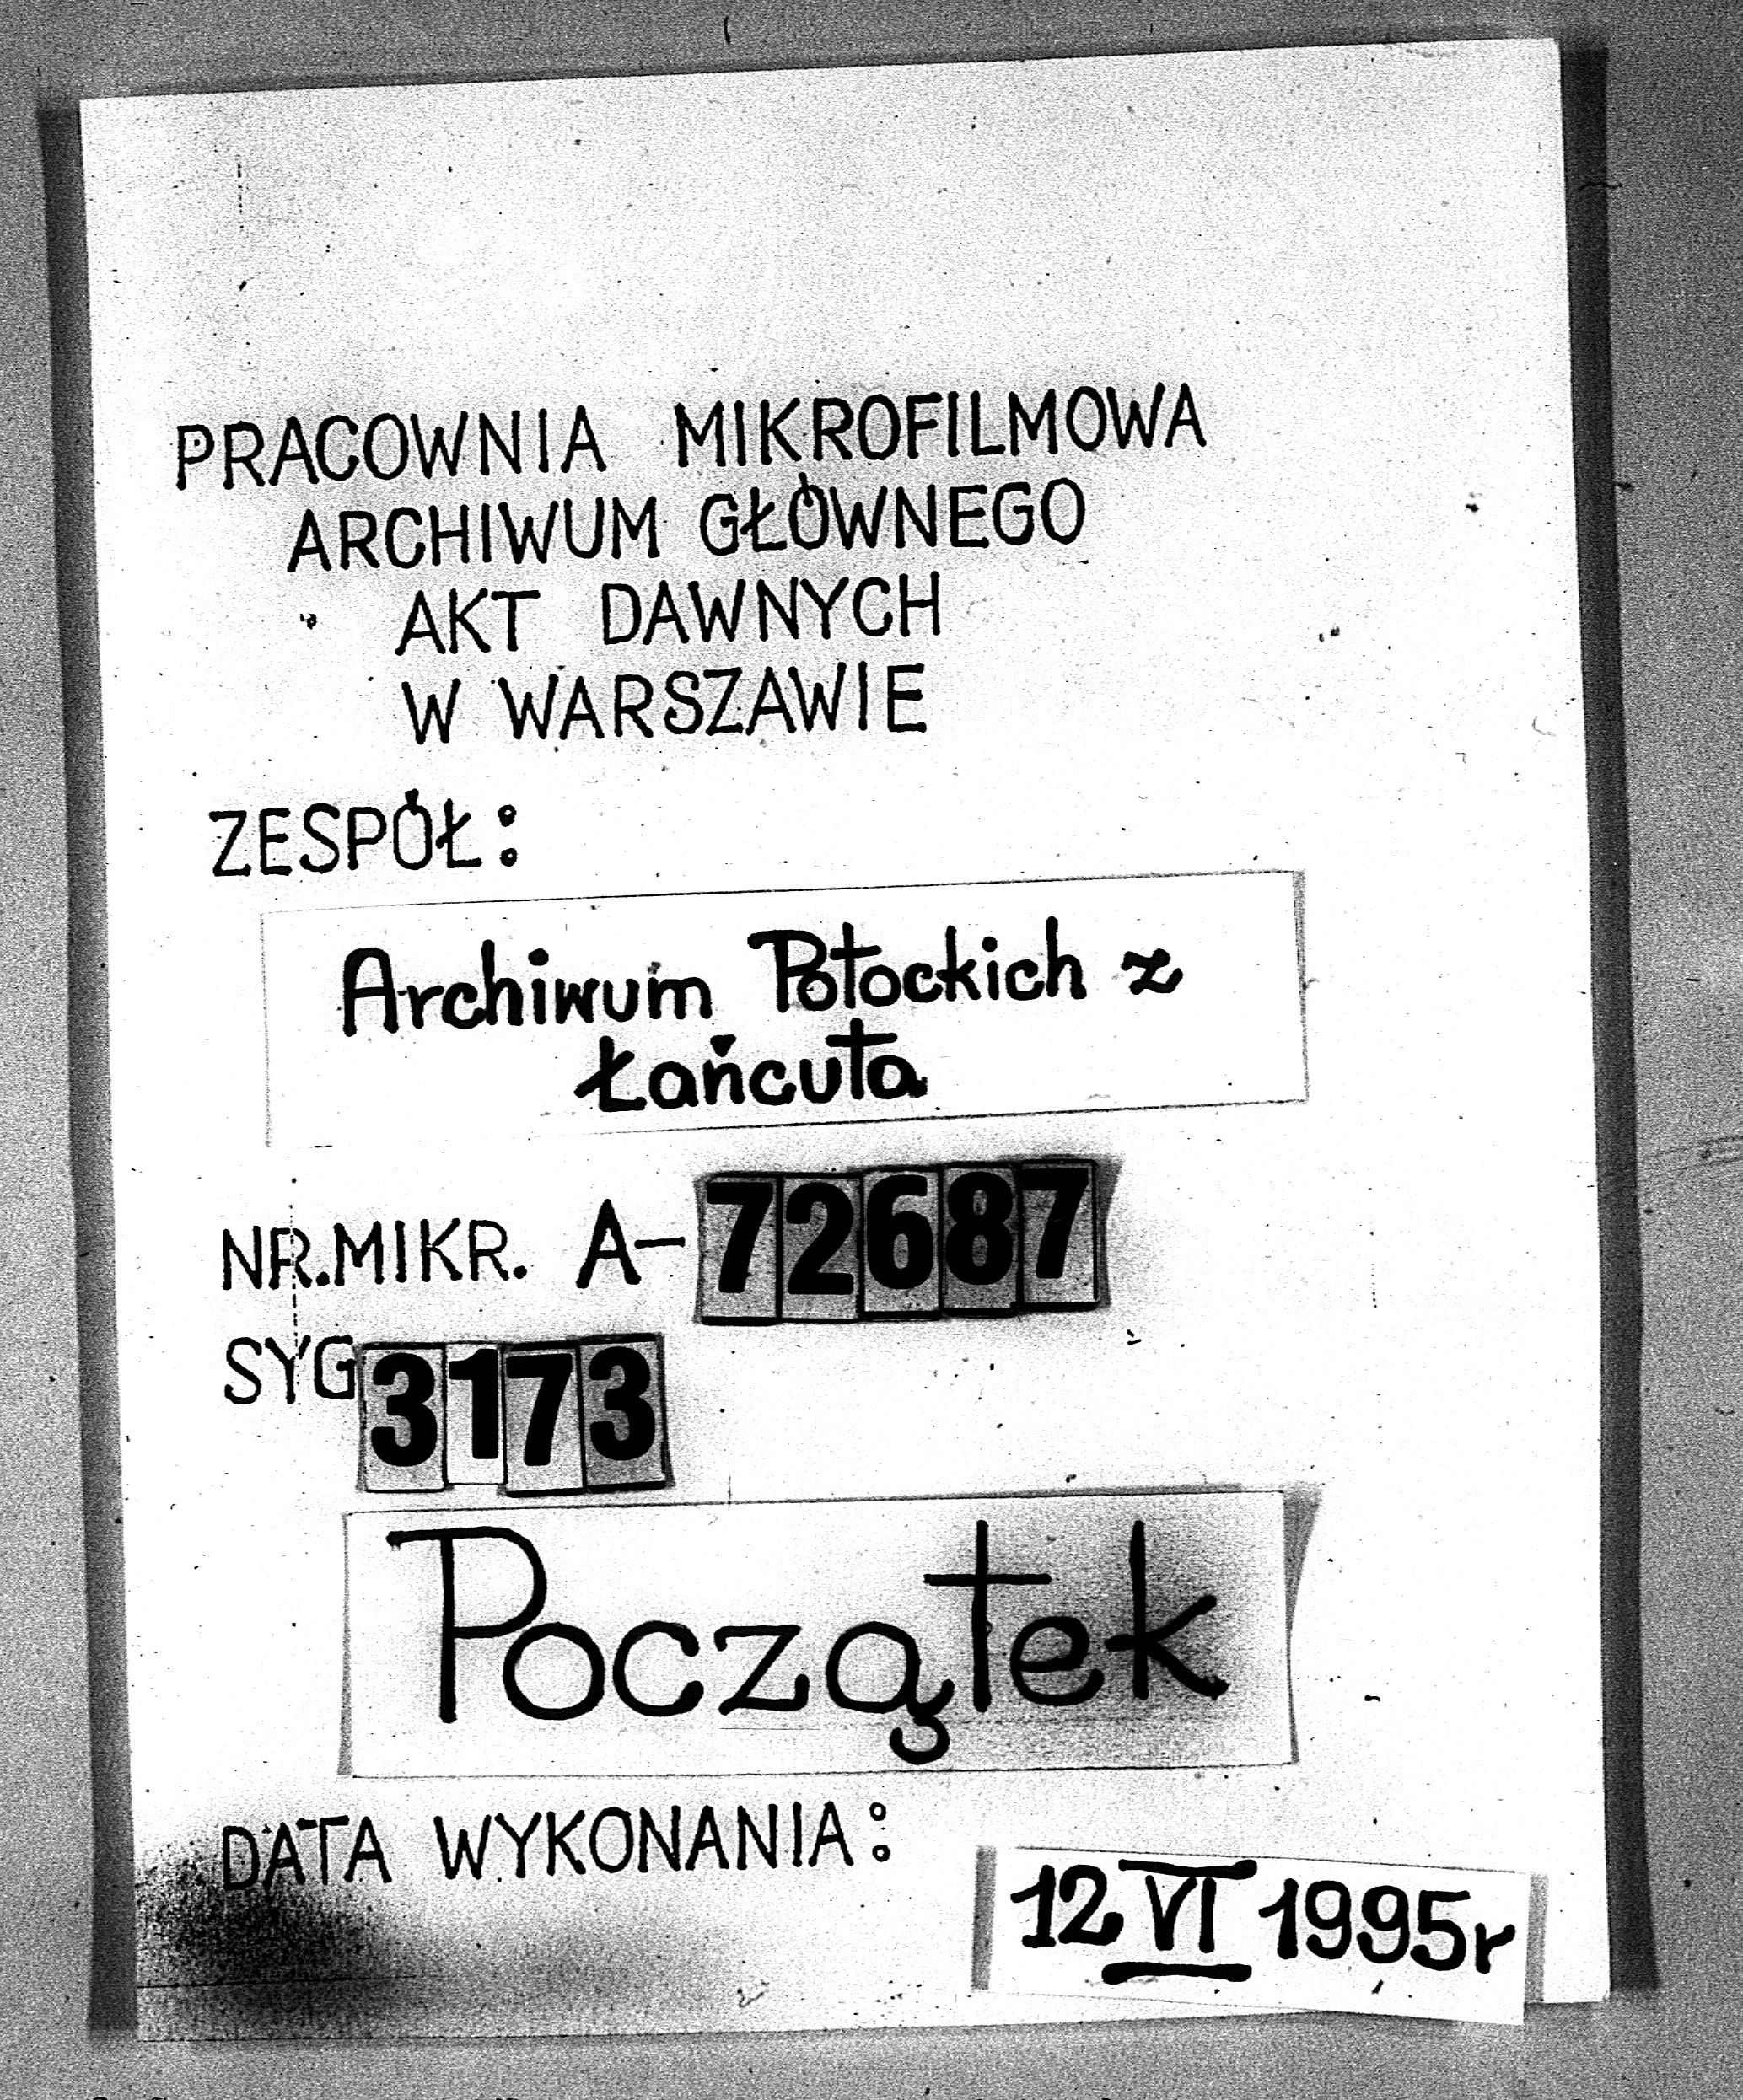 PRACOWNIA MIKROFILMOWA
ARCHIWUM GŁÓWNEGO
AKT DAWNYCH
W WARSZAWIE
ZESPÓŁ:
Archiwum Potockich z
Łańcuta
NR.MIKR. A-72687
SYG 3173
Początek
DATA WYKONANIA:
12 VI 1995r